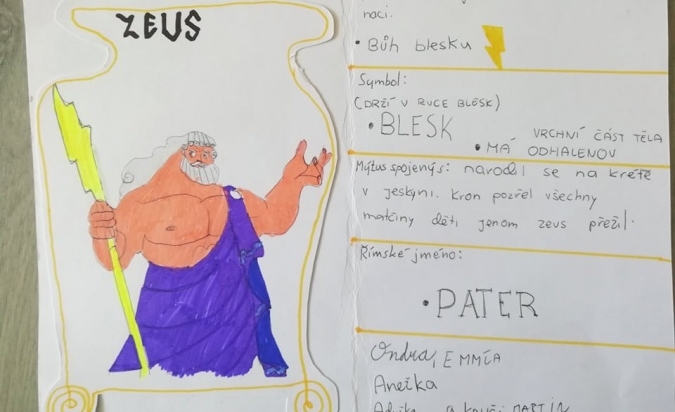 ZEUS
noci.
• Bůh blesku
Symbol:
(DRŽÍ V RUCE BLESK)
• BLESK
• MÁ VRCHNÍ ČÁST TĚLA
ODHALENOV
Mýtus spojený s: narodil se na krétě
v jeskyni. Kron pozřel všechny
matčiny děti jenom zeus přežil.
Římské jméno:
• PATER
Ondra, EMMÍA
Anežka